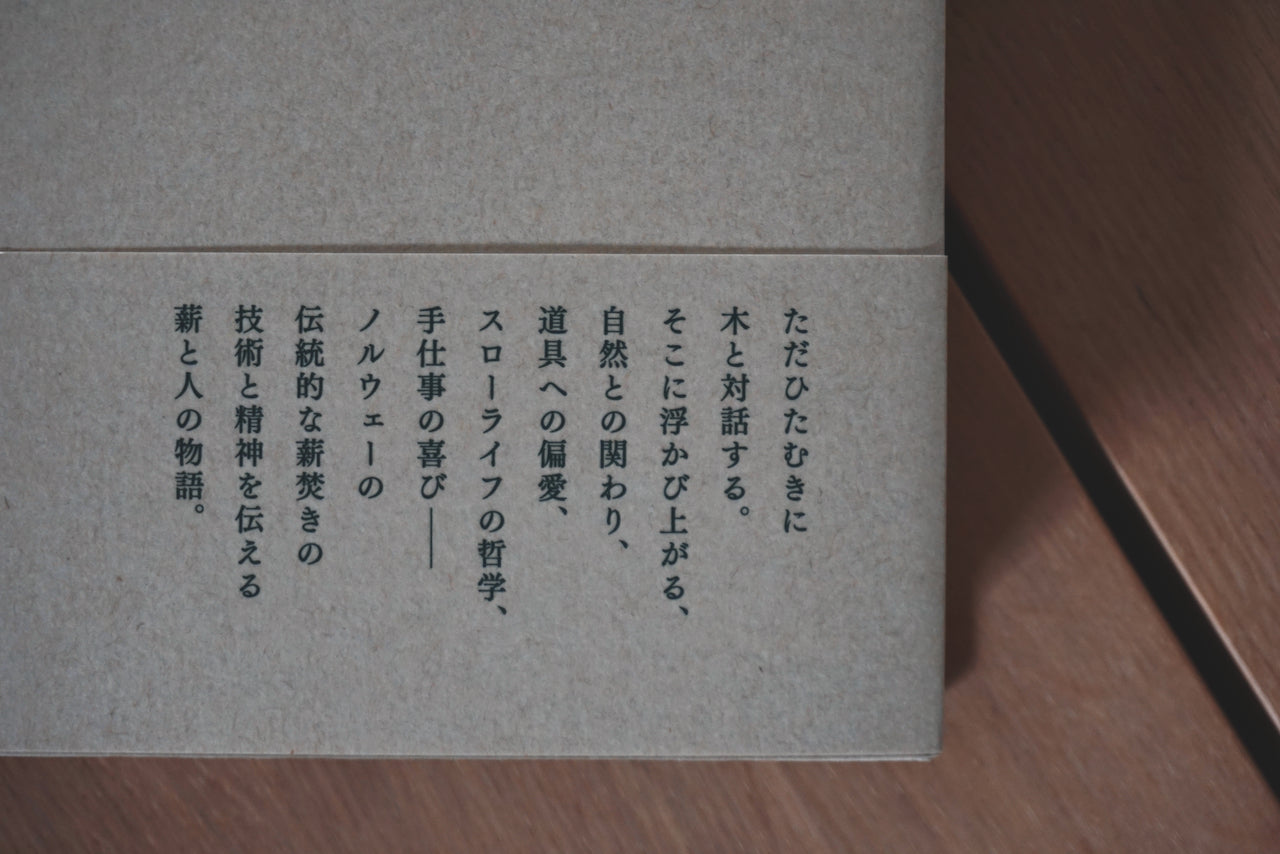 ただひたむきに
木と対話する。
そこに浮かび上がる、
自然との関わり、
道具への偏愛、
スローライフの哲学、
手仕事の喜び——
ノルウェーの
伝統的な薪焚きの
技術と精神を伝える
薪と人の物語。